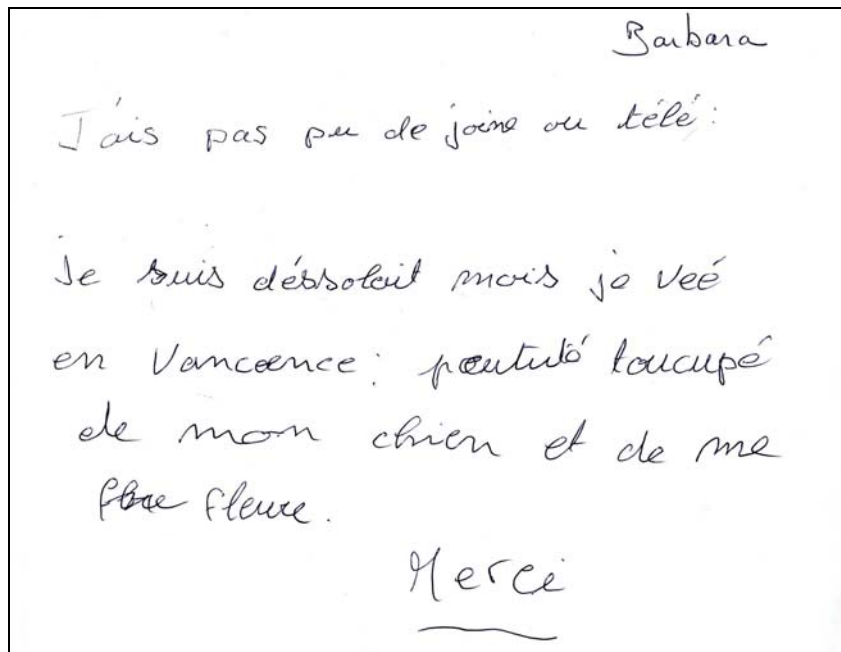 Barbara
J'ais pas pu de joine ou télé :
Je suis déssolait mais je veé
en Vancance : peututé toucupé
de mon chien et de me
fleure.
Merci